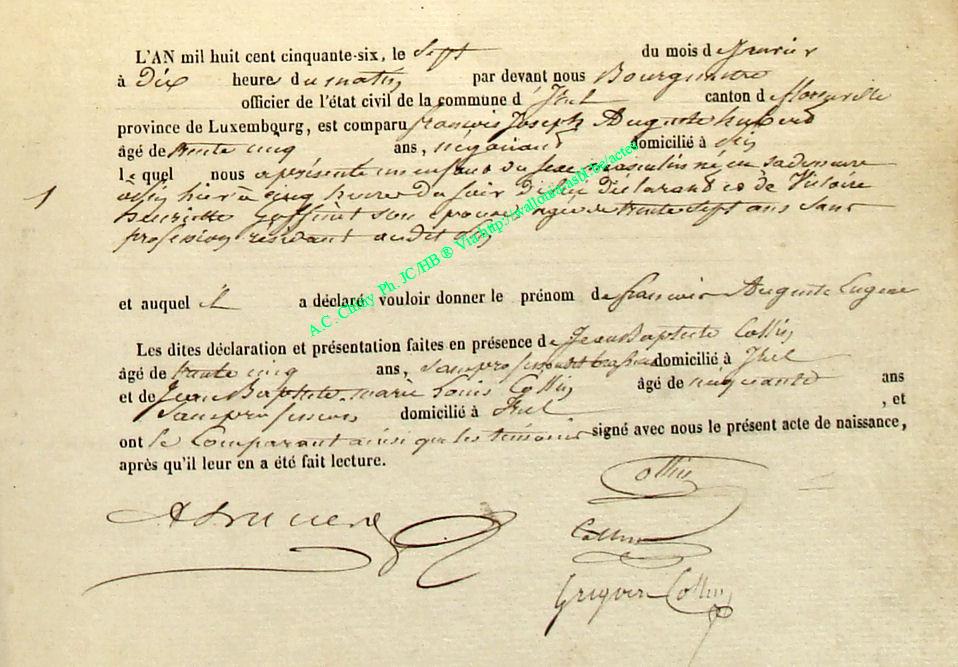 L'AN mil huit cent cinquante-six, le Sept du mois de Janvier
à Dix heures du matin par devant nous Bourgmestre
officier de l'état civil de la commune d' Izel canton de Florenville
province de Luxembourg, est comparu francois Joseph Auguste
âgé de trente cinq ans, négociant domicilié à
lequel nous a présenté un enfant du sexe masculin né en sa demeure
hier à cinq heures du soir de lui déclarant et de Victoire
Henriette Goffinet son épouse agée de trente sept ans sans
profession résidant audit
1
et auquel il a déclaré vouloir donner le prénom de francois Auguste Eugene
Les dites déclaration et présentation faites en présence de Jean Baptiste Collin
âgé de trente cinq ans, sans profession domicilié à Izel
et de Jean Baptiste marie Louis Collin âgé de cinquante ans
sans profession domicilié à Izel , et
ont le Comparant ainsi que les témoins signé avec nous le présent acte de naissance,
après qu'il leur en a été fait lecture.
A.C. Chiny Ph. JC/HB ® Via http://wallonica
Collin
Collin
Collin